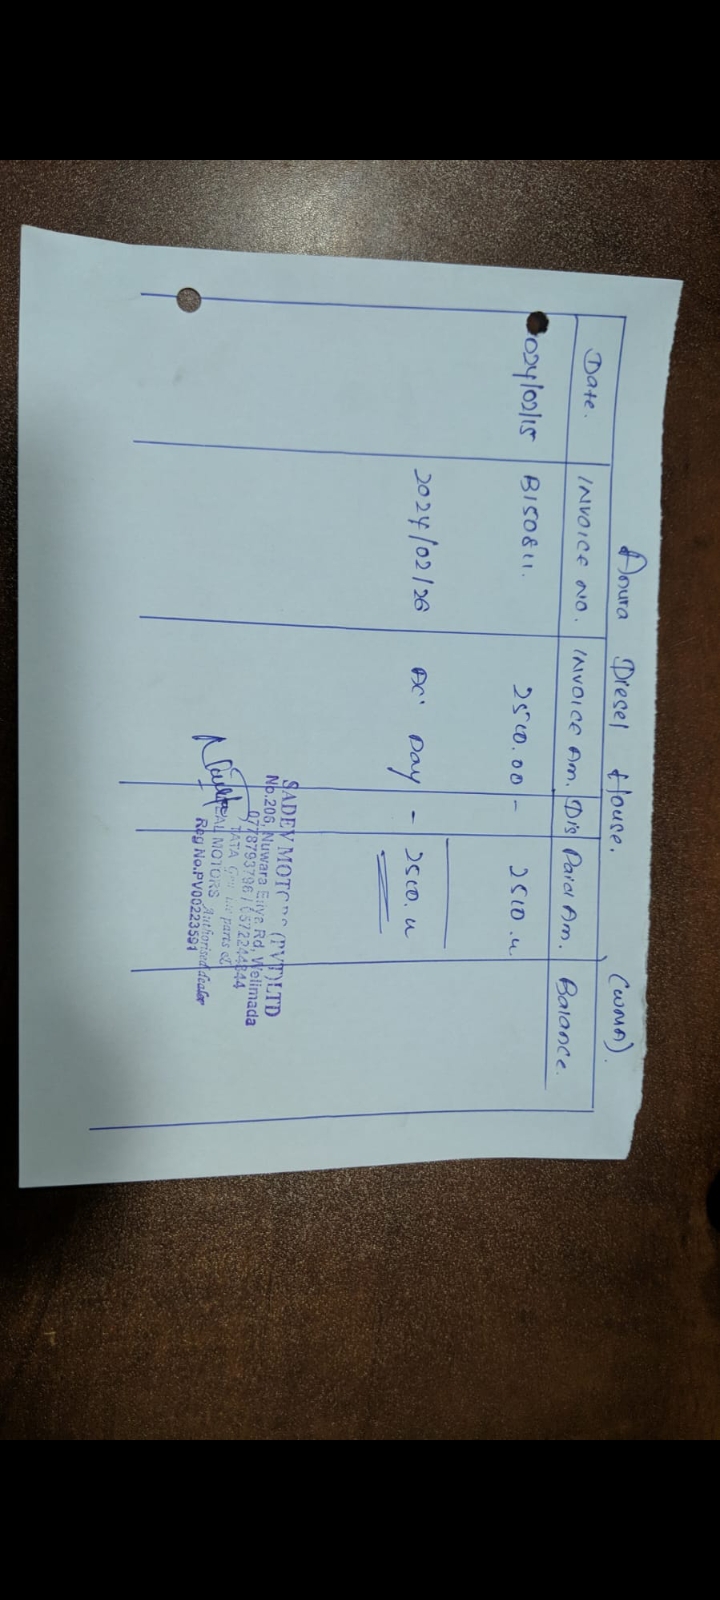 Anura Diesel House. (WMA).
Date. INVOICE NO. INVOICE Am. Dis Paid Am. Balance.
024/02/15 B150811. 2500.00 - 2500.00
2024/02/26 AC' Pay - 2500.00
SADEV MOTORS (PVT) LTD
No.206, Nuwara Eliya Rd, Welimada
0778793796 / 0572244844
TATA Genuine parts &
MOTORS Authorised dealer
Reg No.PV00223591